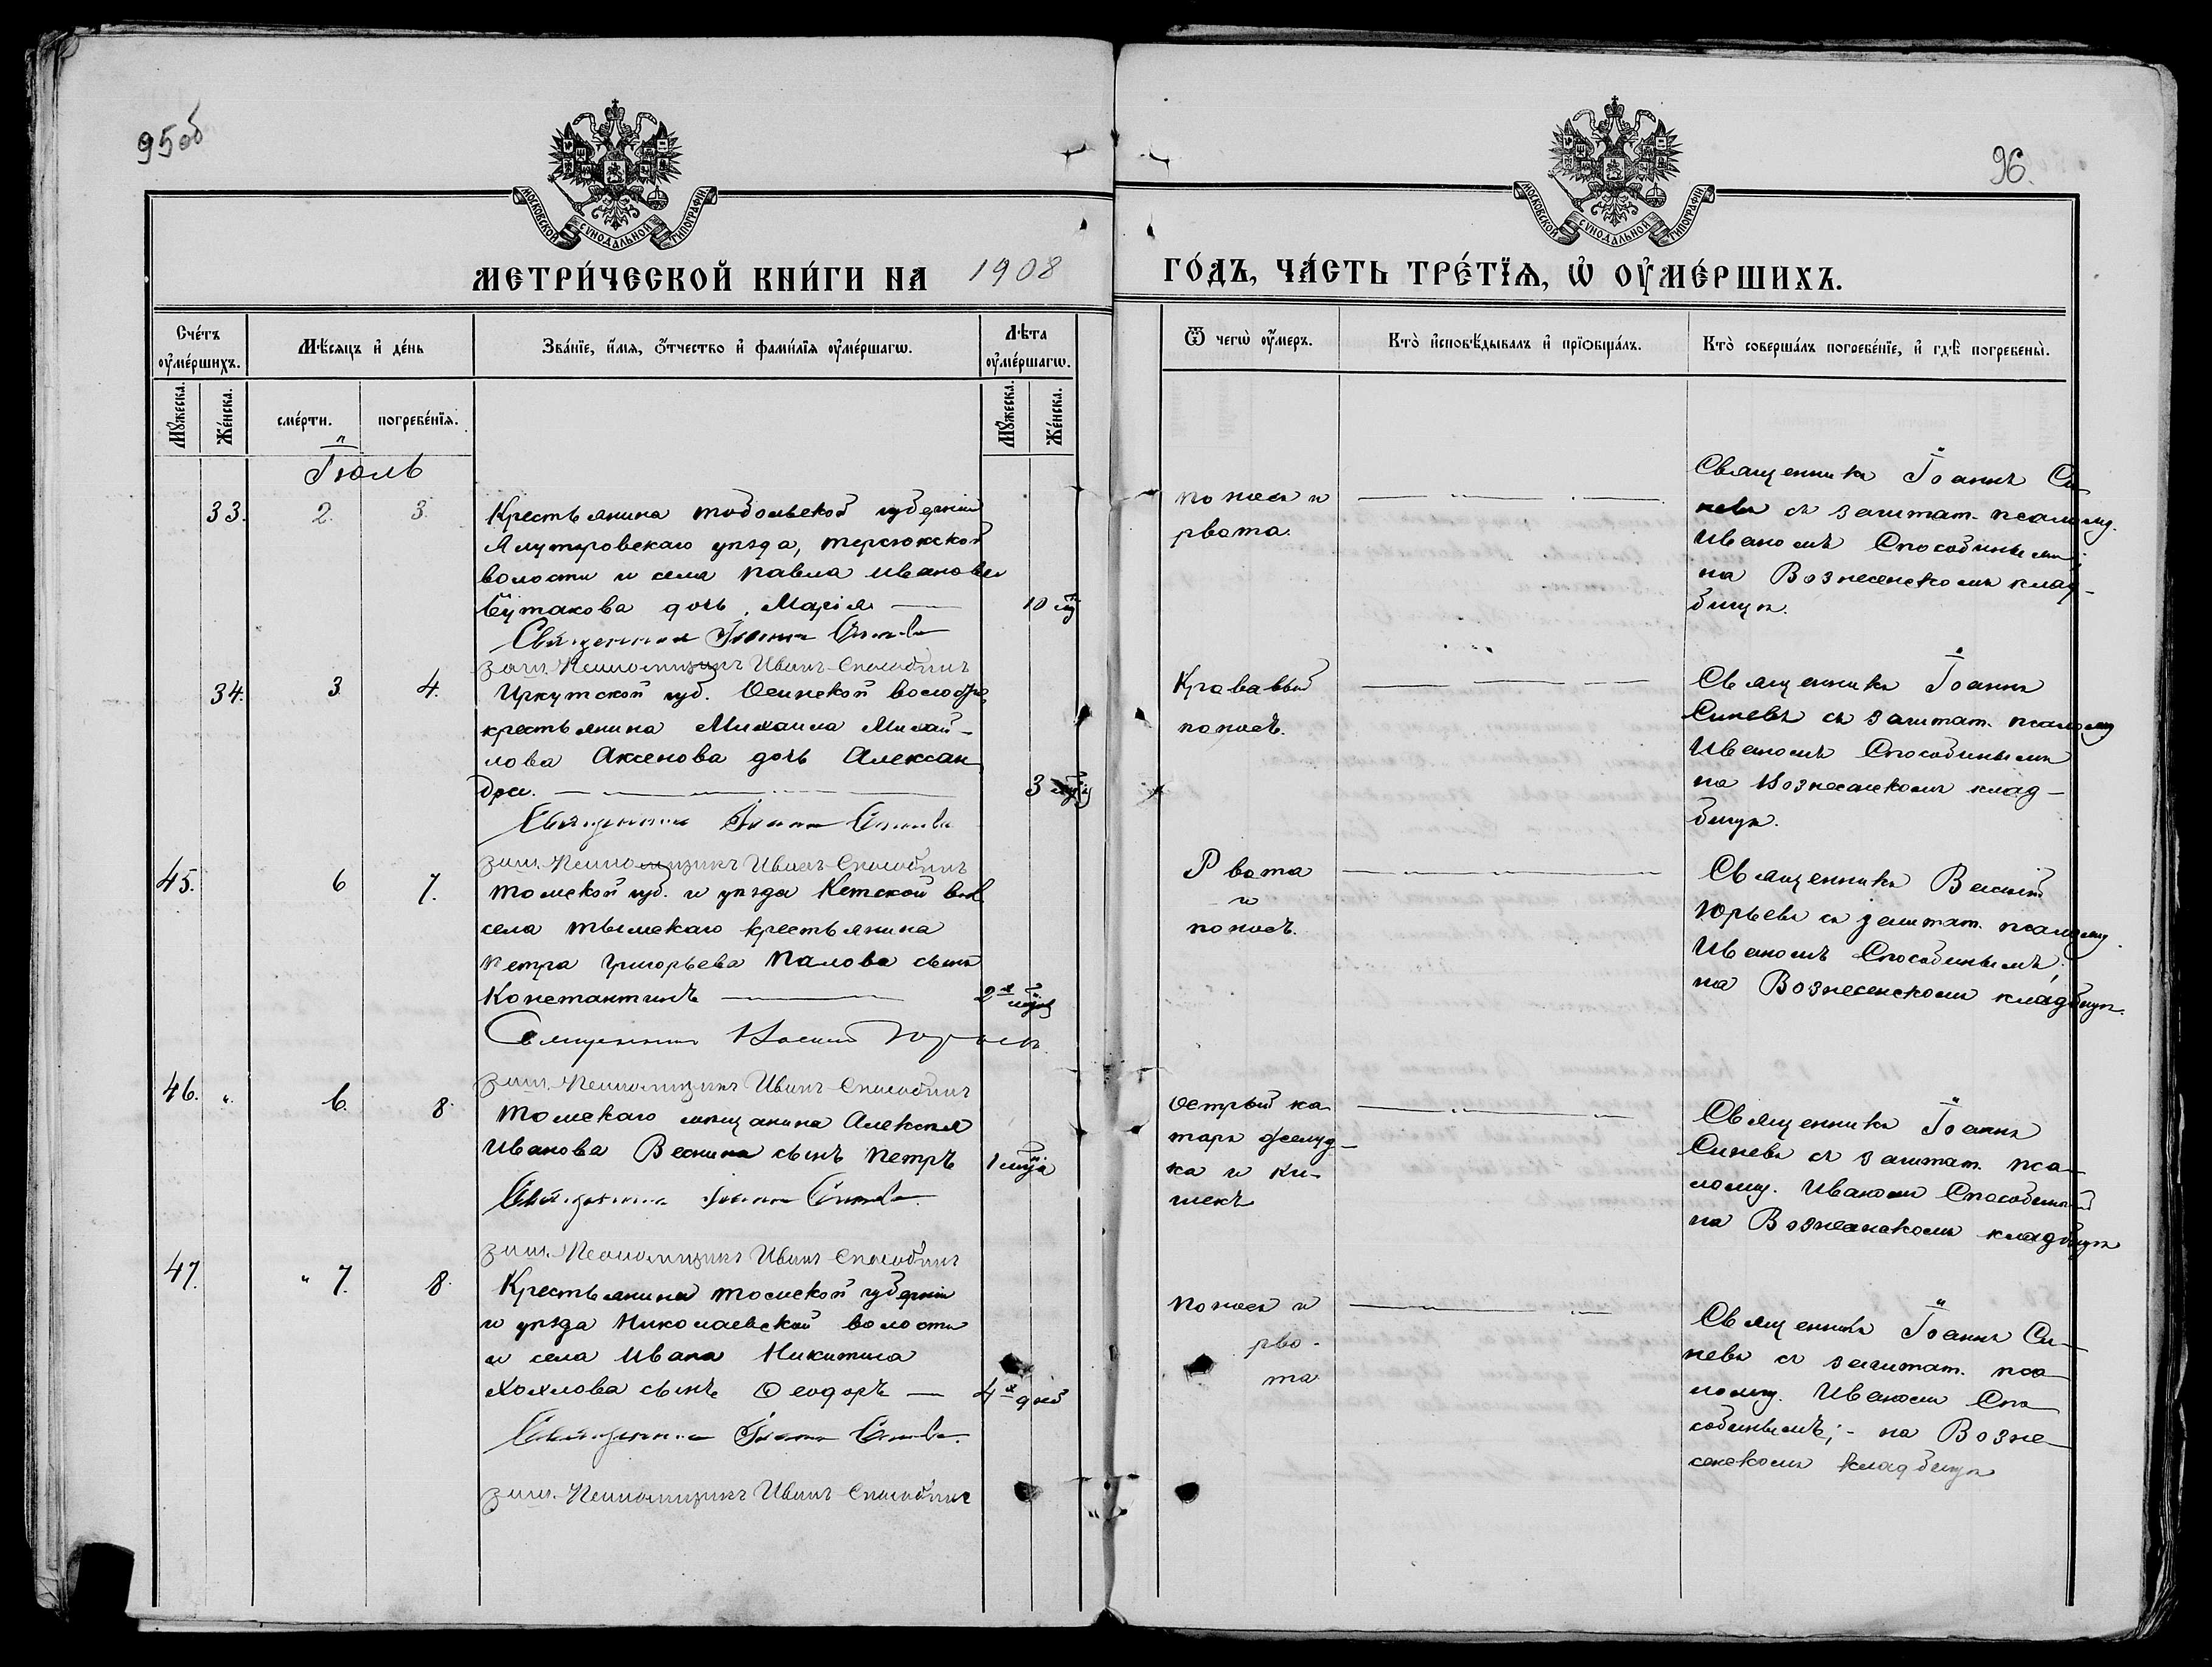 95 об
96.
МОСКОВСКОЙ СѴНОДАЛЬНОЙ ТИПОГРАФІИ
МОСКОВСКОЙ СѴНОДАЛЬНОЙ ТИПОГРАФІИ
МЕТРИ́ЧЕСКОЙ КНИ́ГИ НА 1908
ГО́ДЪ, ЧА́СТЬ ТРЕ́ТЇѦ, Ѡ҆ ОУ҆МЕ́РШИХЪ.
Сче́тъ оу҆ме́ршихъ.
Мѣ́сяцъ и҆ де́нь
Зва́нїе, и҆́мѧ, ѻ҆́тчество и҆ фами́лїѧ оу҆ме́ршагѡ.
Лѣ́та оу҆ме́ршагѡ.
Ѿ чегѡ̀ оу҆́меръ.
Кто̀ и҆сповѣ́дывалъ и҆ прїѡбща́лъ.
Кто̀ соверша́лъ погребе́нїе, и҆ гдѣ̀ погребены̀.
Мꙋ́жеска.
Же́нска.
сме́рти.
погребе́нїѧ.
Мꙋ́жеска.
Же́нска.
Іюль
33.
2.
3.
Крестьянина Тобольской губерніи
Ялуторовскаго уѣзда, Терсюкской
волости и села Павла Иванова
Бутакова дочь, Марія
10 м.
Священникъ Іоаннъ Синевъ
заш. Псаломщикъ Иванъ Способинъ
поносъ и
рвота.
Священникъ Іоаннъ Си-
невъ съ заштат. псаломщ.
Иваномъ Способинымъ
на Вознесенскомъ клад-
бищѣ.
34.
3.
4.
Иркутской губ. Осинской волости,
крестьянина Михаила Михай-
лова Аксенова дочь Алексан
дра.
3
Священникъ Іоаннъ Синевъ
заш. Псаломщикъ Иванъ Способинъ
Кровавый
поносъ.
Священникъ Іоаннъ
Синевъ съ заштат. псаломщ
Иваномъ Способинымъ
на Вознесенскомъ клад-
бищѣ.
45.
6
7.
Томской губ. и уѣзда Кетской вол.
села Тымскаго крестьянина
Петра Григорьева Палова сынъ
Константинъ
2х
Священникъ Василій Юрьевъ
заш. Псаломщикъ Иванъ Способинъ
Рвота
и
поносъ.
Священникъ Василій
Юрьевъ съ заштат. псаломщ.
Иваномъ Способинымъ,
на Вознесенскомъ кладбищѣ.
46.
6.
8.
Томскаго мѣщанина Алексѣя
Иванова Веснина сынъ Петръ
1
Священникъ Іоаннъ Синевъ
заш. Псаломщикъ Иванъ Способинъ
Острый ка-
таръ желуд-
ка и ки-
шекъ
Священникъ Іоаннъ
Синевъ съ заштат. пса-
ломщ. Иваномъ Способинымъ
на Вознесенскомъ кладбищѣ
47.
" 7.
8.
Крестьянина Томской губерніи
и уѣзда Николаевской волости
и села Ивана Никитина
Хохлова сынъ Ѳеодоръ
4х дней
Священникъ Іоаннъ Синевъ.
заш. Псаломщикъ Иванъ Способинъ
поносъ и
рво-
та
Священникъ Іоаннъ Си-
невъ съ заштат. пса-
ломщ. Иваномъ Спо-
собинымъ; - на Возне-
сенскомъ кладбищѣ